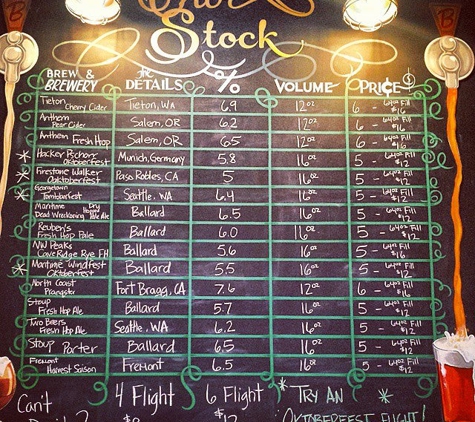 Our
Stock
BREW & BREWERY the DETAILS % VOLUME PRICE $
Tieton Cherry Cider Tieton, WA 6.9 12oz 6 - 64oz Fill $16
Anthem Pear Cider Salem, OR 6.2 12oz 6 - 64oz Fill $16
Anthem Fresh Hop Salem, OR 6.5 12oz 6 - 64oz Fill $16
* Hacker Pschorr Oktoberfest Munich, Germany 5.8 16oz 5 - 64oz Fill $12
* Firestone Walker Oaktoberfest Paso Robles, CA 5 16oz 5 - 64oz Fill $12
* Georgetown Tomtoberfest Seattle, WA 6.4 16oz 5 - 64oz Fill $12
Maritime Dead Wreckoning Dry Hopped Pale Ale Ballard 6.5 16oz 5 - 64oz Fill $12
Reuben's Fresh Hop Pale Ballard 6.0 16oz 5 - 64oz Fill $12
NW Peaks Cave Ridge FH Ballard 5.6 16oz 5 - 64oz Fill $12
* Maritime Windfest Oktberfest Ballard 5.5 16oz 5 - 64oz Fill $12
North Coast Prangster Fort Bragg, CA 7.6 12oz 6 - 64oz Fill $16
Stoup Fresh Hop Ale Ballard 5.7 16oz 5 - 64oz Fill $12
Two Beers Fresh Hop Ale Seattle, WA 6.2 16oz 5 - 64oz Fill $12
Stoup Porter Ballard 6.5 16oz 5 - 64oz Fill $12
Fremont Harvest Saison Fremont 6.5 16oz 5 - 64oz Fill $12
Can't 4 Flight 6 Flight * TRY AN *
$12 OKTOBERFEST FLIGHT!